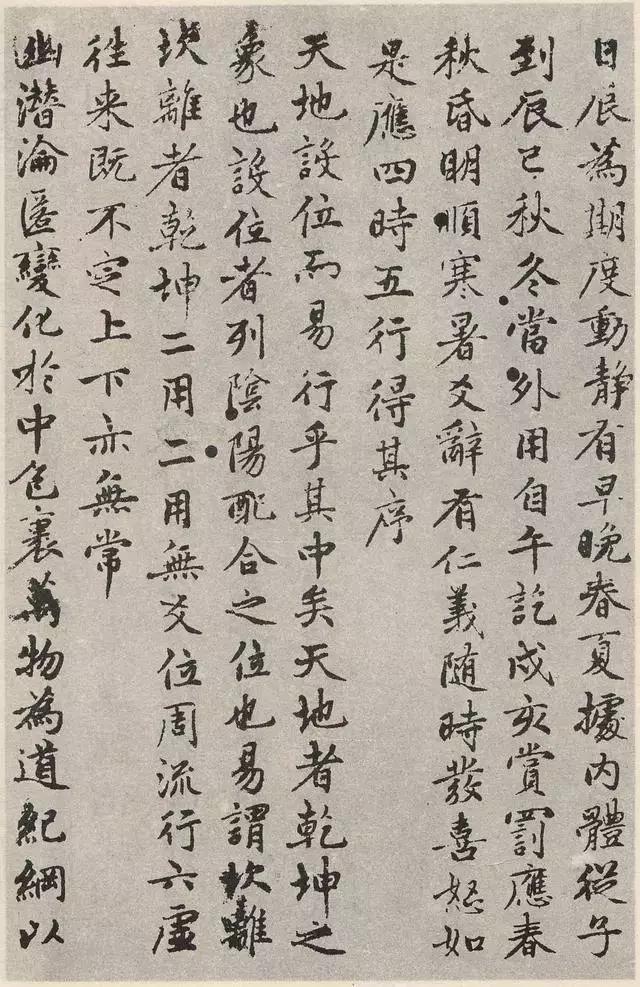 日辰為期度動静有早晚春夏據内體從子
到辰巳秋冬當外用自午訖戌亥賞罰應春
秋昏明順寒暑爻辭有仁義随時發喜怒如
是應四時五行得其序
天地設位而易行乎其中矣天地者乾坤之
象也設位者列陰陽配合之位也易謂坎離
坎離者乾坤二用二用無爻位周流行六虚
往来既不定上下亦無常
幽潜淪匿變化於中包裹萬物為道紀綱以